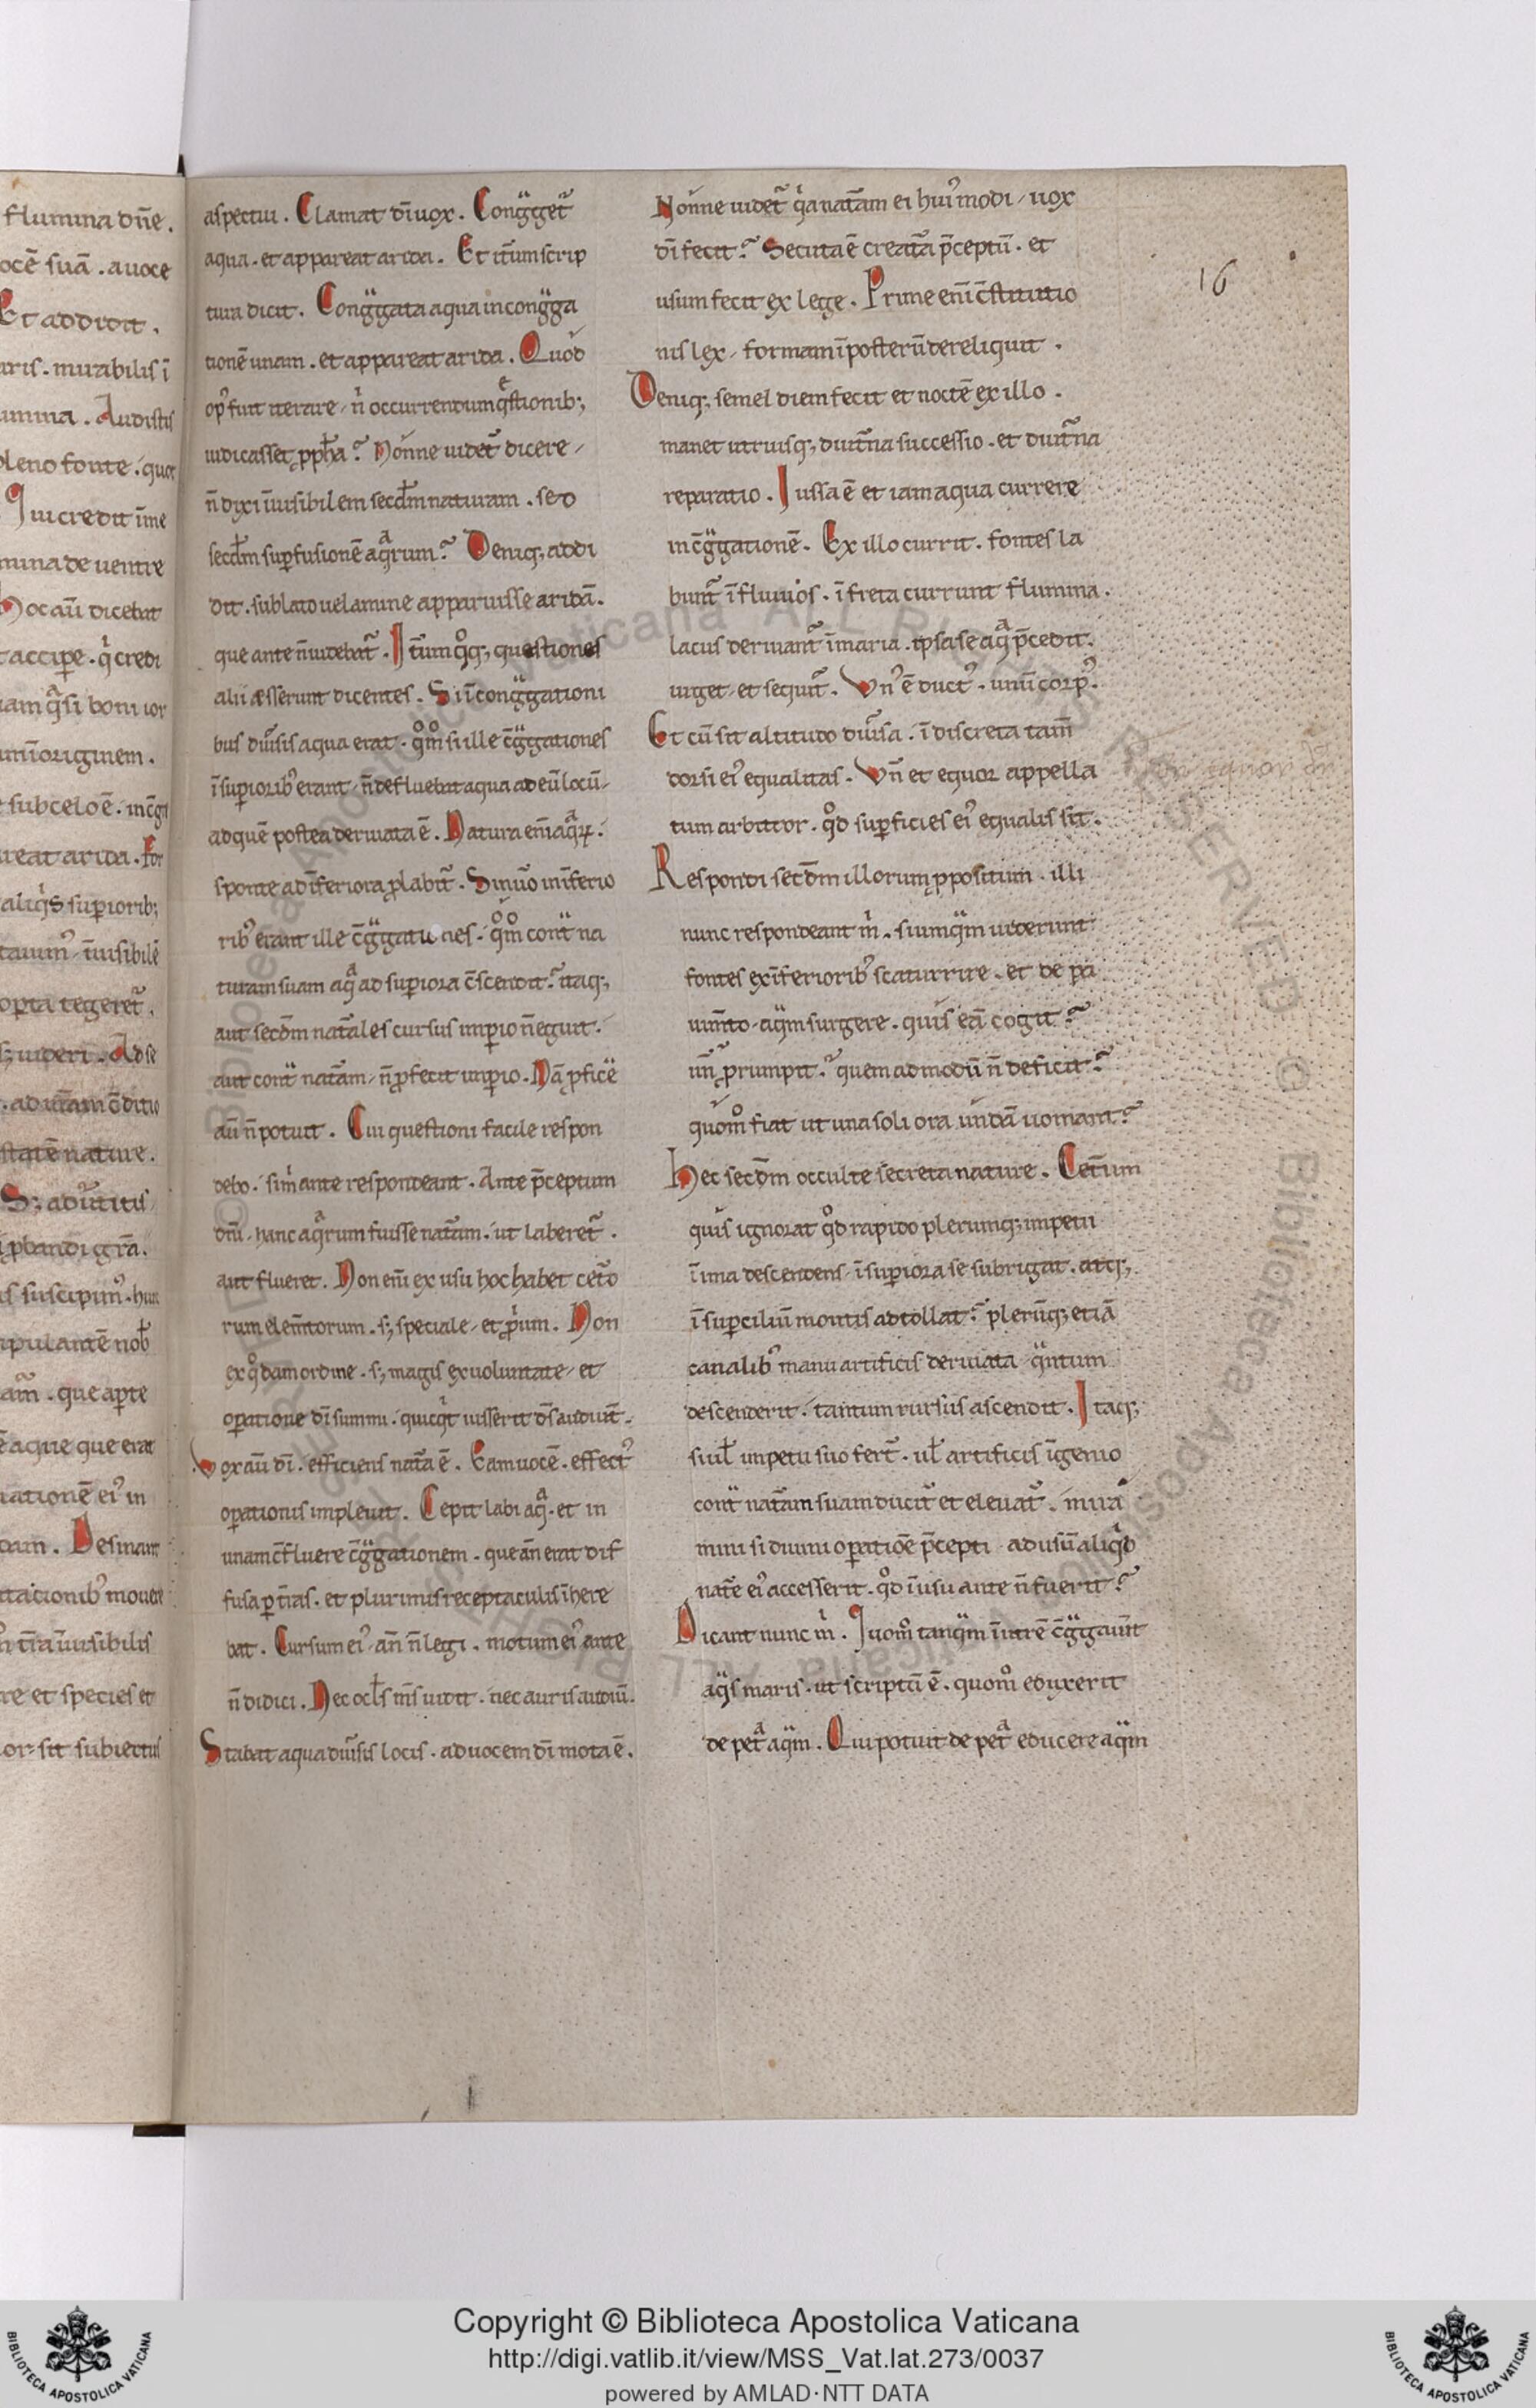 flumina dn̄e.
ocē suā. a uoce
Et addidit.
aris. mirabilis ī
umina. Audistis
pleno fonte. quot
Qui credit ī me
mina de uentre
hoc aū dicebat
accipe. q̇ credi
iam q̄si boni ior
um̄ originem.
sub celo ē. in cg̃
areat arida. For
aliq̇s superiorib;
opta tegeret̃.
uideri. Ad se
ad utam c̄ditio
statē nature.
S; aduertitis
pbandi gr̃a.
is suscipim᾿. hu
ipulantē nob̄
am̃. que apte
ē aque que erat
ationē ei᾿ in
dam. Desinant
tationib᾿ mouere
tr̄a īuisibilis
re et species et
or. sit subiectus
aspectui. Clamat dī uox. Cong̈get̃
aqua. et appareat arida. Et itm̄ scrip
tura dicit. Cong̈gata aqua in cong̈ga
tionē unam. et appareat arida. Quod
op᾿ fuit iterare / n̄ occurrendum q̄stionib;
iudicasset ꝓph̄a? Nonne uidet̃ dicere /
n̄ dixi īuisibilem secd̄m naturam. sed
secd̄m suꝑfusionē aq̃rum? Deniq; addi
dit. sublato uelamine apparuisse aridā.
que ante n̄ uidebat̃. Itm̄ q̊q; questiones
alii asserunt dicentes. Si ī cong̈gationi
bus diũsis aqua erat. q̊m̊ si ille c̄g̈gationes
ī suꝑiorib᾿ erant / n̄ defluebat aqua ad eū locū /
ad quē postea deriuata ē. Natura em̄ aq̃ꝝ.
sponte ad īferiora ꝓlabit̃. Sin uo inferio
rib᾿ erant ille c̄g̈gationes. q̊m̊ cont̃ na
turam suam aq̃ ad suꝑiora c̄scendit? itaq;
aut secd̄m nat̃ales cursus imꝑio n̄ eguit.
aut cont̃ nat̃am / n̄ ꝓfecit imꝑio. Nā ꝓficẽ
aū n̄ potuit. Cui questioni facile respon
debo. si m̄ ante respondeant. Ante p̄ceptum
dn̄i. hanc aq̃rum fuisse nat̃am. ut laberet̃.
aut flueret. Non em̄ ex usu hoc habet cet̃o
rum elem̄torum. s; speciale / et ꝓp̓um. Non
ex q̊dam ordine. s; magis ex uoluntate / et
oꝑatione dī summi. quicq̇t iusserit ds̄ audiut̃.
Vox aū dī. efficiens nat̃a ē. Eam uocē. effect᾿
oꝑationis impleuit. Cepit labi aq̃. et in
unam c̄fluere c̄g̈gationem. que an̄ erat dif
fusa ꝑ tr̄as. et plurimis receptaculis īhere
bat. Cursum ei᾿ an̄ n̄ legi. motum ei᾿ ante
n̄ didici. Nec ocl̄s m̄s uidit. nec auris audiū.
Stabat aqua diũsis locis. ad uocem dī mota ē.
Nonne uidet̃ q̇a nat̃am ei hui᾿modi / uox
dī fecit? Secuta ē creat̃a p̄ceptū. et
usum fecit ex lege. Prime em̄ c̄stitutio
nis lex / formam ī posterū dereliquit.
Deniq; semel diem fecit et noctē ex illo.
manet utriusq; diut̃na successio. et diut̃na
reparatio. Iussa ē et iam aqua currere
in c̄g̈gationē. Ex illo currit. fontes la
bunt̃ ī fluuios. ī freta currunt flumina.
lacus deriuant̃ ī maria. ipsa se aq̃ p̄cedit.
urget / et sequit̃. Vn᾿ ē duct᾿. unū corp᾿.
Et cū sit altitudo diũsa. īdiscreta tam̄
dorsi ei᾿ equalitas. Vn̄ et equor appella
tum arbitror. q̊d suꝑficies ei᾿ equalis sit.
Respondi secd̄m illorum ꝓpositum. illi
nunc respondeant m̄. si umq̃m uiderunt
fontes ex īferiorib᾿ scaturrire. et de pa
uim̄to. aq̃m surgere. quis eā cogit?
un̄ ꝓrumpit? quemadmodū n̄ deficit?
quom̊ fiat ut una soli ora undā uomant?
Hec secd̄m occulte secreta nature. Cet̃um
quis ignorat q̊d rapido plerumq; impetu
ī ima descendens / ī suꝑiora se subrigat. atq;
ī suꝑciliū montis adtollat? plerūq; etiā
canalib᾿ manu artificis deriuata q̃ntum
descenderit. tantum rursus ascendit. Itaq;
si ul̄ impetu suo fert̃. ul̄ artificis īgenio
cont̃ nat̃am suam ducit̃ et eleuat̃. mira
mini si diuini oꝑationē p̄cepti ad usū aliq̇d
nat̃e ei᾿ accesserit. q̊d ī usu ante n̄ fuerit?
Dicant nunc m̄. Quom̊ tanq̃m ī utrē c̄g̈gauit
aq̃s maris. ut scriptū ē. quom̊ eduxerit
de pet̃a aq̃m. Qui potuit de pet̃a educere aq̃m
16
Copyright © Biblioteca Apostolica Vaticana
http://digi.vatlib.it/view/MSS_Vat.lat.273/0037
powered by AMLAD·NTT DATA
BIBLIOTECA APOSTOLICA VATICANA
BIBLIOTECA APOSTOLICA VATICANA